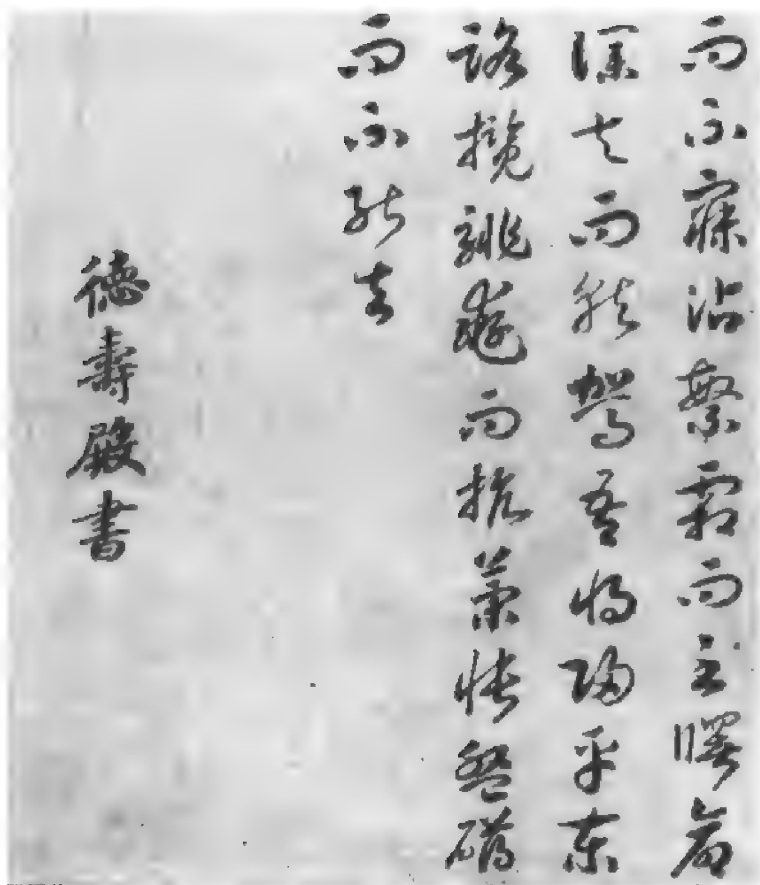 而不寐沾繁霜而至曙命
僕夫而就駕吾將歸乎東
路攬騑轡而抗策悵盤礴
而不能去
德壽殿書